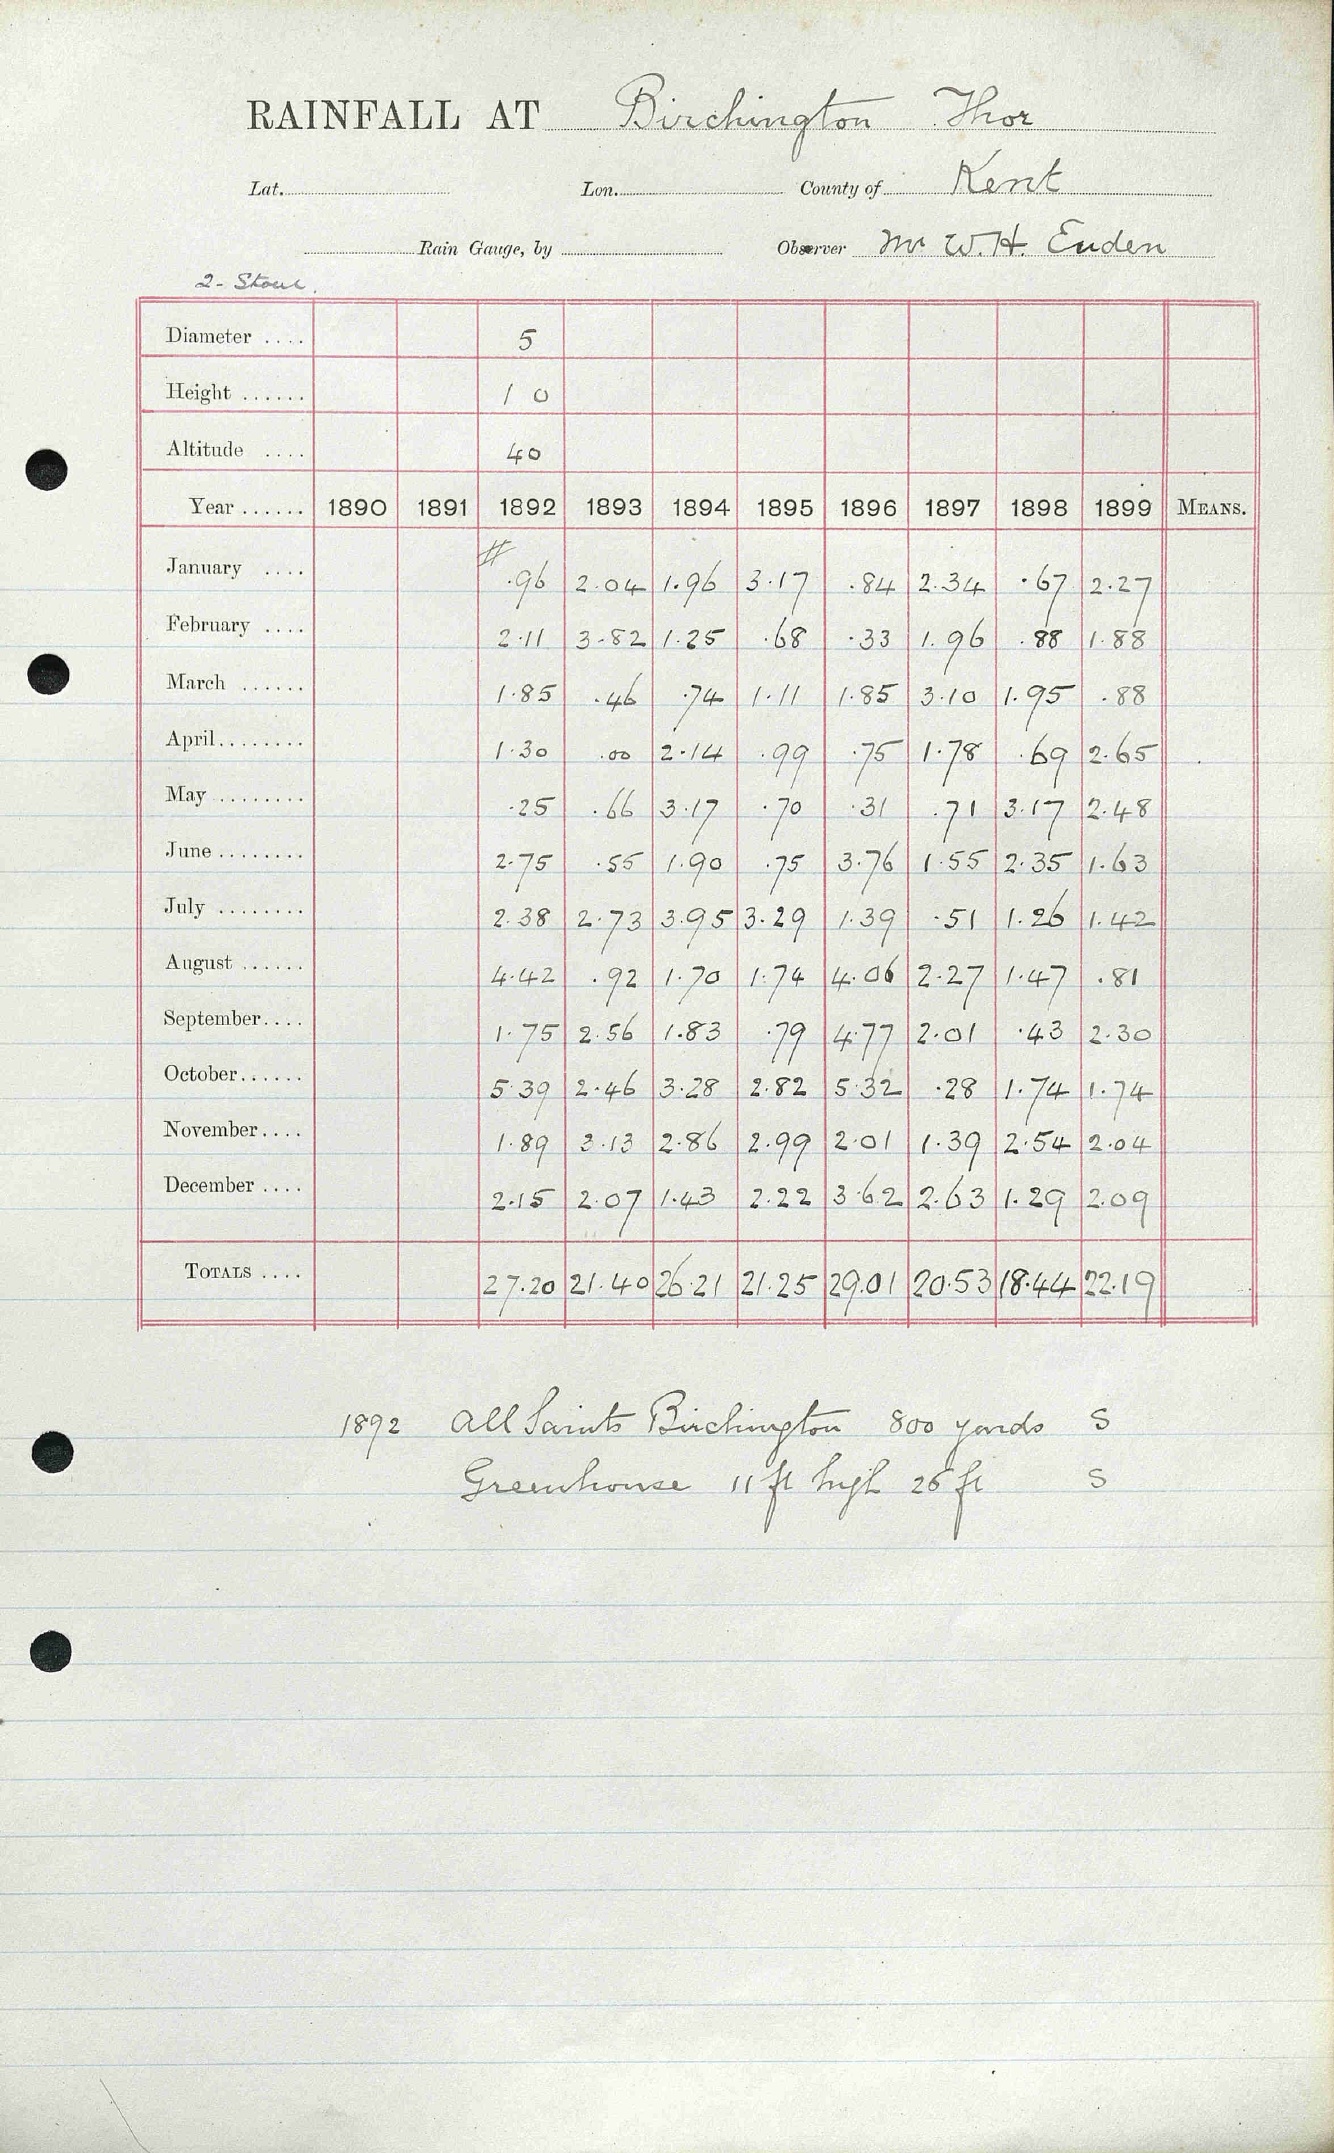 RAINFALL AT Birchington Thor
Lat. Lon. County of Kent
Rain Gauge, by Observer Mr W.H. Enden
2 - Stour.
Diameter .... 5
Height ...... 1 0
Altitude .... 40
Year ...... 1890 1891 1892 1893 1894 1895 1896 1897 1898 1899 MEANS.
January .... # .96 2.04 1.96 3.17 .84 2.34 .67 2.27
February .... 2.11 3.82 1.25 .68 .33 1.96 .88 1.88
March ...... 1.85 .46 .74 1.11 1.85 3.10 1.95 .88
April........ 1.30 .00 2.14 .99 .75 1.78 .69 2.65
May ........ .25 .66 3.17 .70 .31 .71 3.17 2.48
June ........ 2.75 .55 1.90 .75 3.76 1.55 2.35 1.63
July ........ 2.38 2.73 3.95 3.29 1.39 .51 1.26 1.42
August ...... 4.42 .92 1.70 1.74 4.06 2.27 1.47 .81
September.... 1.75 2.56 1.83 .79 4.77 2.01 .43 2.30
October...... 5.39 2.46 3.28 2.82 5.32 .28 1.74 1.74
November.... 1.89 3.13 2.86 2.99 2.01 1.39 2.54 2.04
December .... 2.15 2.07 1.43 2.22 3.62 2.63 1.29 2.09
TOTALS .... 27.20 21.40 26.21 21.25 29.01 20.53 18.44 22.19
1892 All Saints Birchington 800 yards S
Greenhouse 11 ft high 26 ft S